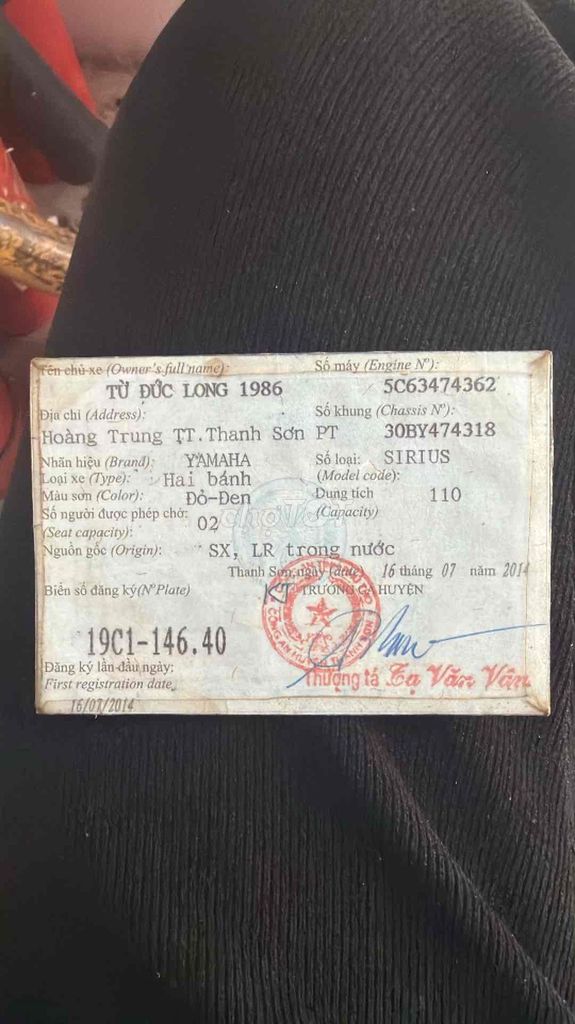 Tên chủ xe (Owner's full name):
TỪ ĐỨC LONG 1986
Số máy (Engine N°):
5C63474362
Địa chỉ (Address):
Hoàng Trung TT.Thanh Sơn PT
Số khung (Chassis N°):
30BY474318
Nhãn hiệu (Brand): YAMAHA
Số loại: SIRIUS
(Model code):
Loại xe (Type): Hai bánh
Màu sơn (Color): Đỏ-Đen
Dung tích 110
(Capacity)
Số người được phép chở: 02
(Seat capacity):
chợTỐT
Nguồn gốc (Origin): SX, LR trong nước
Thanh Sơn, ngày (date) 16 tháng 07 năm 2014
Biển số đăng ký(N°Plate)
KT TRƯỞNG CA HUYỆN
19C1-146.40
CÔNG AN HUYỆN THANH SƠN
Thượng tá Tạ Văn Vân
Đăng ký lần đầu ngày:
First registration date
16/07/2014